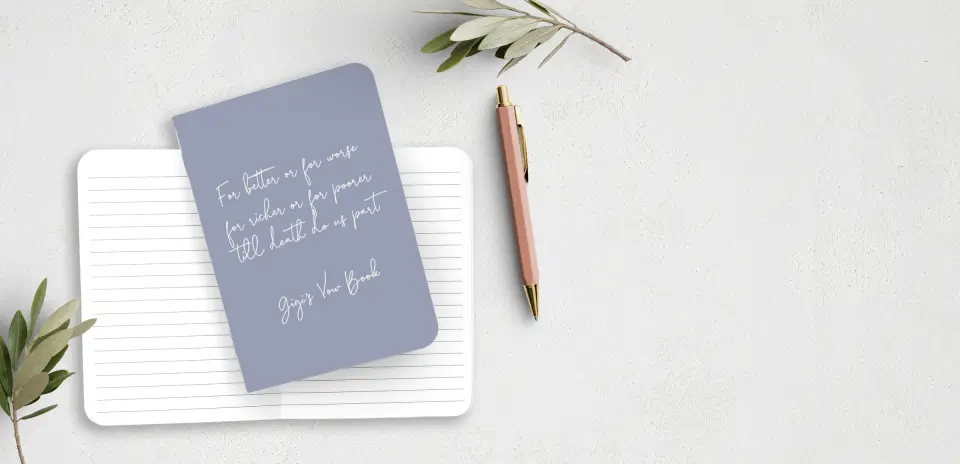 For better or for worse
for richer or for poorer
till death do us part
Gigi's Vow Book